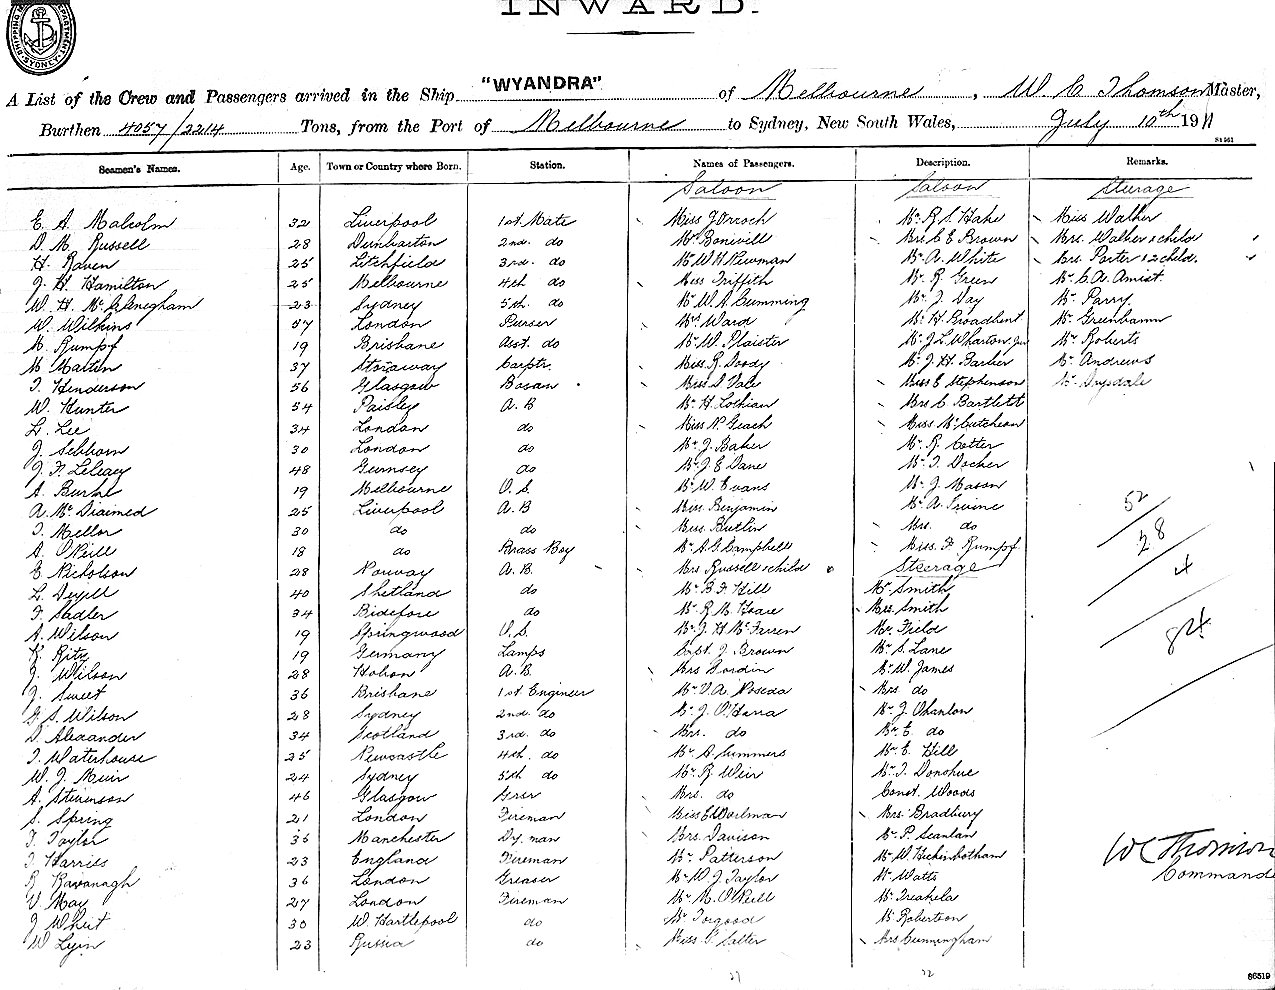 INWARD.
SYDNEY
"WYANDRA"
A List of the Crew and Passengers arrived in the Ship of Melbourne, W. C. Thomson Master,
Burthen 4057/2214 Tons, from the Port of Melbourne to Sydney, New South Wales, July 10th 1911
S1561
Seamen's Names. Age. Town or Country where Born. Station. Names of Passengers. Description. Remarks.
Saloon Saloon Steerage
E. A. Malcolm 32 Liverpool 1st Mate Miss J Orroch Mr R S Hake Miss Walker
D. M. Russell 28 Dunbarton 2nd. do Mr Bonivell Mrs C E Brown Mrs. Walker & child
H. Raven 25 Litchfield 3rd. do Mr W H Newman Mr A. White Mrs. Porter & 2 child.
J. H. Hamilton 25 Melbourne 4th do Miss Griffith Mr R Green Mr C. A. Amist
W. H. 23 Sydney 5th do Mr W A Cumming Mr J. Day Mr Parry
W. Wilkins 57 London Purser Mr Ward Mr H Broadhent Mr Greenhamn
M. Rumpf 19 Brisbane Asst. do Mr W. Plaister Mr J L Wharton Jun Mr Roberts
M Martin 37 Stornaway Carptr. Miss R. Doody Mr J. H. Barker Mr Andrews
T. Henderson 56 Glasgow Bosun Miss D Vale Miss E Stephenson Mr Drysdale
W. Hunter 54 Paisley A. B Mr H. Lothian Mrs C Bartlett
L. Lee 34 London do Miss N. Geach Miss McCutcheon
J. Sebborn 30 London do Mr J. Baker Mr R Cotter
J. F. 48 Guernsey do Mr J. E Dane Mr T. Docker
A. Burke 19 Melbourne O. S. Mr W. Evans Mr J. Mason
A. Mc Diaimed 25 Liverpool A. B Miss Benjamin Mr A. Irvine
T. Mellor 30 do do Miss Butlin Mrs. do
A. O'Neill 18 do Brass Boy Mr A. G. Campbell Miss. F. Rumpf
E. Nicholson 28 Norway A. B. Mrs Russell & child Steerage
L. 40 Shetland do Mr B. F. Hill Mr Smith
F. Sadler 34 Bideford do Mr R. M. Hoare Mrs. Smith
A. Wilson 19 Springwood O. S. Mr J. H McFarren Mr Field
R. Ritz 19 Germany Lamps Capt. J. Brown Mr S. Lane
J. Wilson 28 Hobson A. B. Mrs Mr W. James
J. Sweet 36 Brisbane 1st Engineer Mr V. A. Noseda Mrs. do
G. S. Wilson 28 Sydney 2nd. do Mr J. O'Harra Mr J. Ohanlon
D. Alexander 34 Scotland 3rd. do Mrs. do Mr E. do
T. Waterhouse 25 Newcastle 4th. do Mr A. Summers Mr E. Hill
W. J. Muir 24 Sydney 5th do Mr R. Weir Mr T. Donohue
A. Stevenson 46 Glasgow Mrs. do Const. Woods
S. Spring 21 London Fireman Miss E Worlman Mrs. Bradbury
T. Taylor 36 Manchester Dy. man Mrs. Davison Mr P. Scanlan
T. Harriss 23 England Fireman Mr Patterson Mr W. Hickinbotham
R Kavanagh 36 London Greaser Mr W. J Taylor Mr Watts
V May 27 London Fireman Mr M. O'Neill Mr Treahela
J. Whit 30 W. Hartlepool do Mr Torgood Mr Robertson
W Lyin 23 Russia do Miss C. Salter Mrs Cunningham
52
28
4
84
W C Thomson
Command
86519